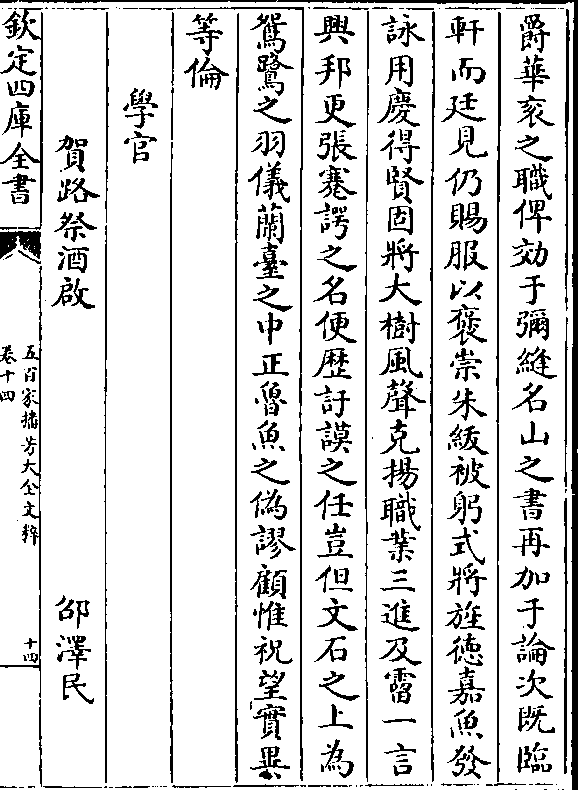 爵華衮之職俾効于彌縫名山之書再加于論次既臨
軒而廷見仍賜服以褒崇朱紱被躬式將旌徳嘉魚發
詠用慶得賢固將大樹風聲克揚職業三進及霤一言
興邦更張蹇諤之名便歴訏謨之任豈但文石之上為
鴛鷺之羽儀蘭臺之中正魯魚之偽謬顧惟祝望實異
等倫
學官
賀路祭酒啟
邵澤民
欽定四庫全書
五百家播芳大全文粹
卷十四
十四